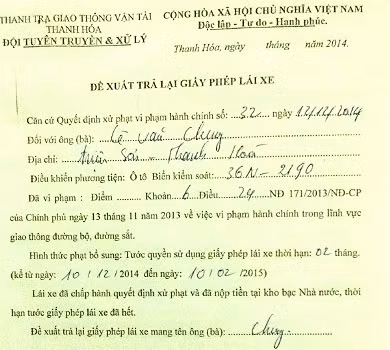 THANH TRA GIAO THÔNG VẬN TẢI
THANH HÓA
ĐỘI TUYÊN TRUYỀN & XỬ LÝ
CỘNG HÒA XÃ HỘI CHỦ NGHĨA VIỆT NAM
Độc lập - Tự do - Hạnh phúc.
Thanh Hóa, ngày tháng năm 2014.
ĐỀ XUẤT TRẢ LẠI GIẤY PHÉP LÁI XE
Căn cứ Quyết định xử phạt vi phạm hành chính số: 32 ngày 12/12/2014
Đối với ông (bà): Lê Văn Chung
Địa chỉ: Thanh Hoá
Điều khiển phương tiện: Ô tô Biển kiểm soát: 36N - 2190
Đã vi phạm : Điểm Khoản 6 Điều 24 NĐ 171/2013/NĐ-CP
của Chính phủ ngày 13 tháng 11 năm 2013 về việc vi phạm hành chính trong lĩnh vực
giao thông đường bộ, đường sắt.
Hình thức phạt bổ sung: Tước quyền sử dụng giấy phép lái xe thời hạn: 02 tháng.
(kể từ ngày 10 / 12 /2014 đến ngày: 10 / 02 /2015)
Lái xe đã chấp hành quyết định xử phạt và đã nộp tiền tại kho bạc Nhà nước, thời
hạn tước giấy phép lái xe đã hết.
Đề xuất trả lại giấy phép lái xe mang tên ông (bà): Chung.